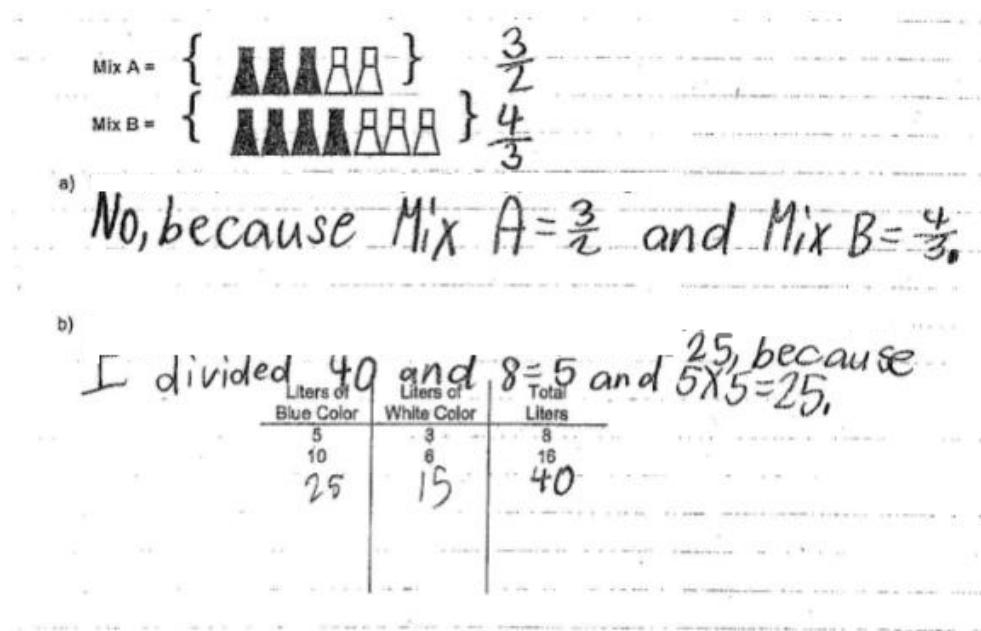 Mix A = { } 3/2
Mix B = { } 4/3
a)
No, because Mix A = 3/2 and Mix B = 4/3.
b)
I divided 40 and 8 = 5 and 25, because 5x5=25.
Liters of Blue Color Liters of White Color Total Liters
5 3 8
10 6 16
25 15 40